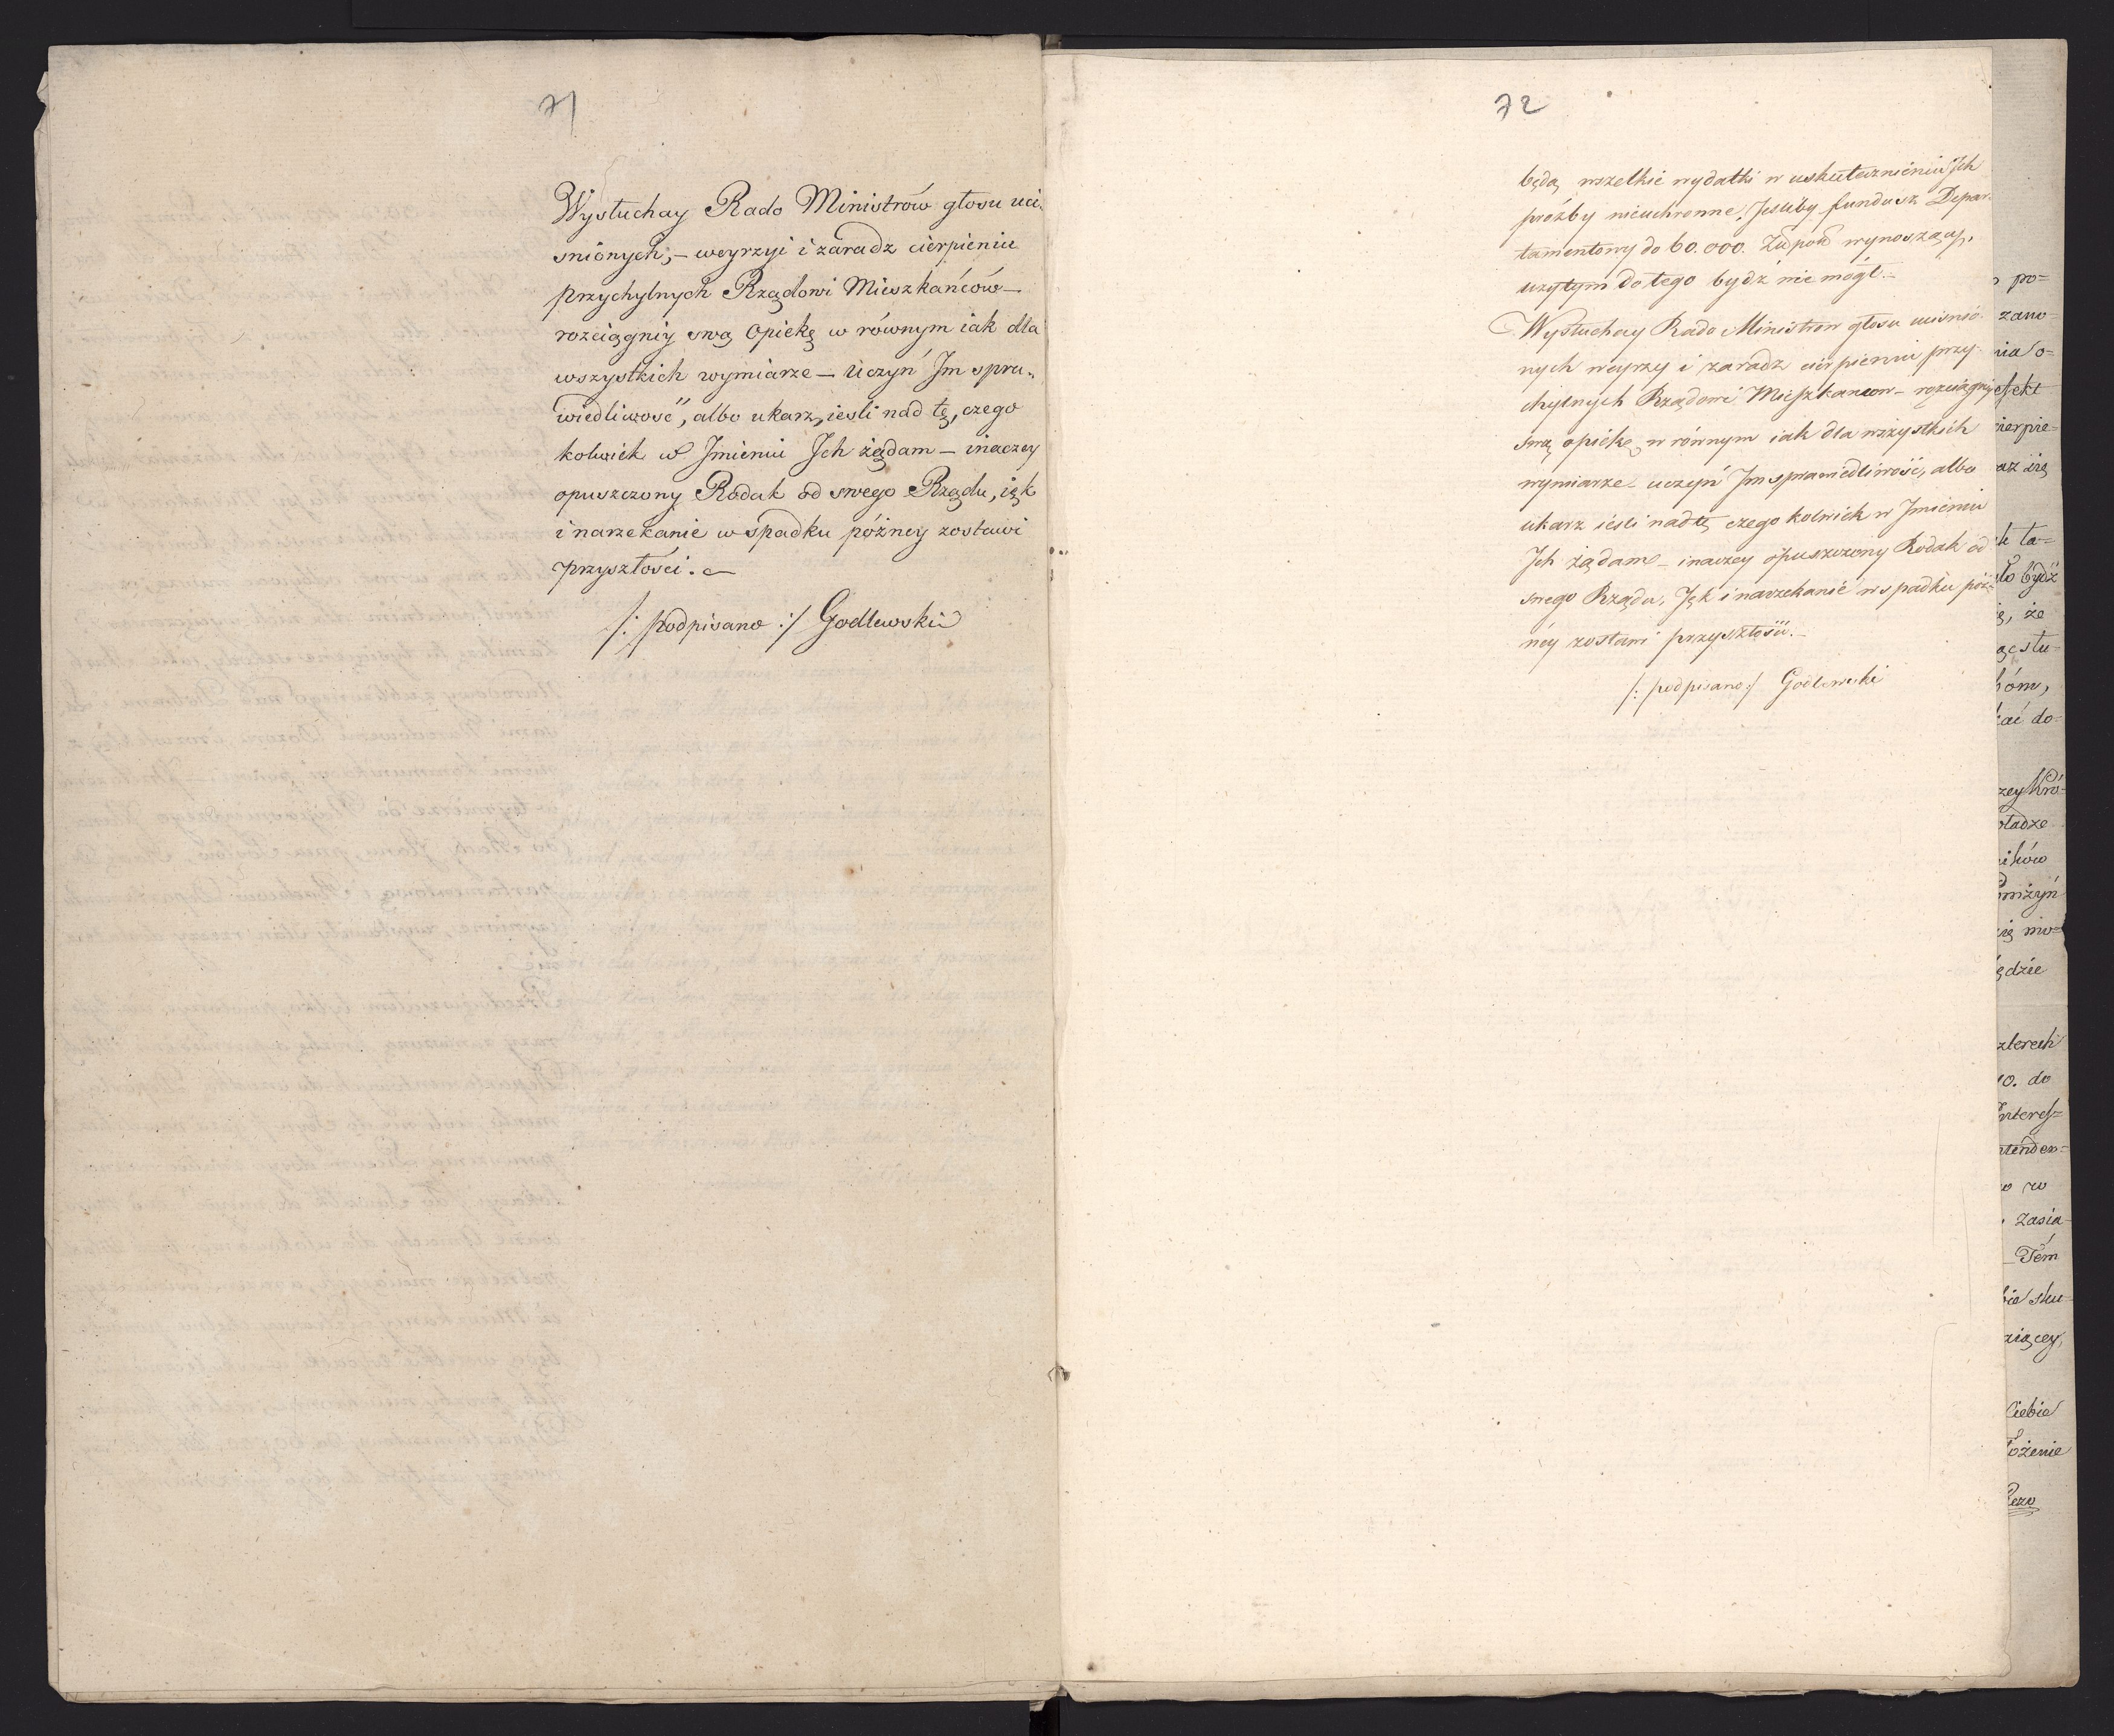 71
Wysłuchay Rado Ministrów głosu uci„
snionych; – weyrzyi i zaradz cierpieniu
przychylnych Rządowi Mieszkańców –
rozciągniy swą Opiekę w równym iak dla
wszystkich wymiarze – uczyń Im spra„
wiedliwość, albo ukarz, iesli nad tę, czego
kolwiek w Imieniu Ich żądam – inaczey
opuszczony Rodak od swego Rządu, ięk
i narzekanie w spadku późney zostawi
przyszłości. –
/: podpisano :/ Godlewski
72
będą wszelkie wydatki w uskutecznieniu Ich
prośby nieuchronne, Jesliby fundusz Depar-
tamentowy do 60.000. Złł pols wynoszący,
użytym do tego bydź nie mógł. –
Wysłuchay Rado Ministrow głosu uciśnio-
nych weyrzy i zaradz cierpieniu przy-
chylnych Rządowi Mieszkancow – rozciągniy
swą opiekę w równym iak dla wszystkich
wymiarze – uczyń Im sprawiedliwość, albo
ukarz ieśli nad tę czego kolwiek w Imieniu
Ich żądam – inaczey opuszczony Rodak od
swego Rządu, Ięk i narzekanie w spadku póź-
néy zostawi przyszłości. –
/: podpisano :/ Godlewski
po=
zano=
nia o=
cierpie=
ta=
bydź
że
do=
zey Kró-
ików
zterech
10. do
Interes=
w
zasia-
Tém
Ciebie
łożenie